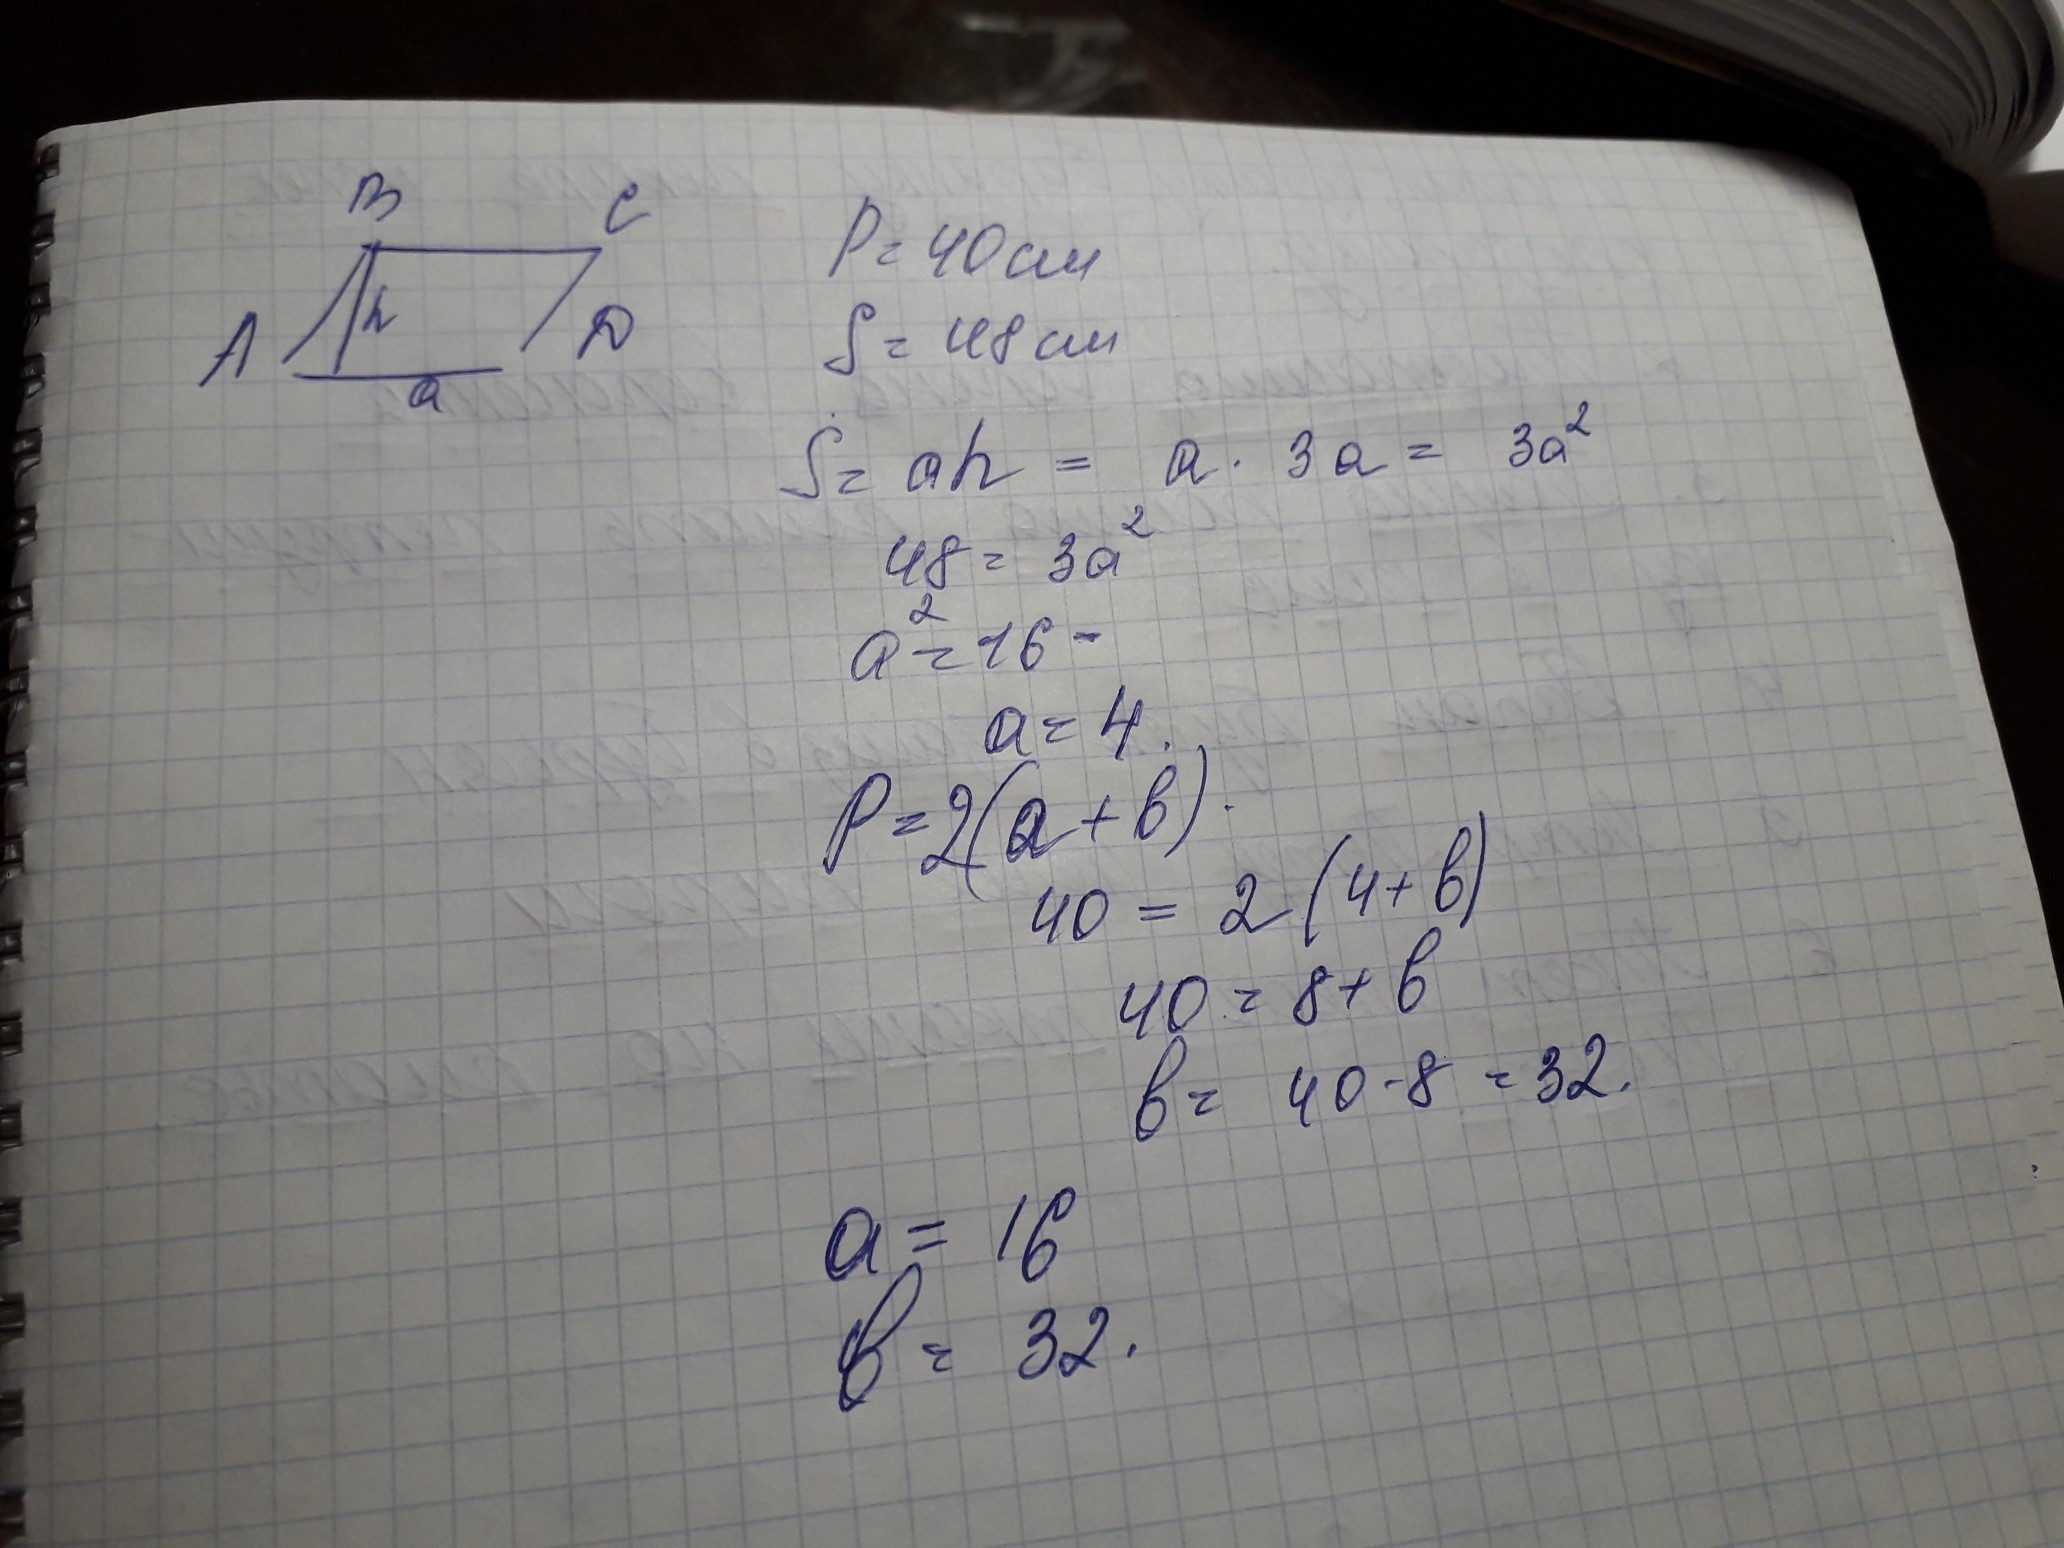 B C
h
A D
a
P = 40 см
S = 48 см
S = ah = a · 3a = 3a²
48 = 3a²
a² = 16 -
a = 4.
P = 2(a + b).
40 = 2 (4 + b)
40 = 8 + b
b = 40 - 8 = 32.
a = 16
b = 32.